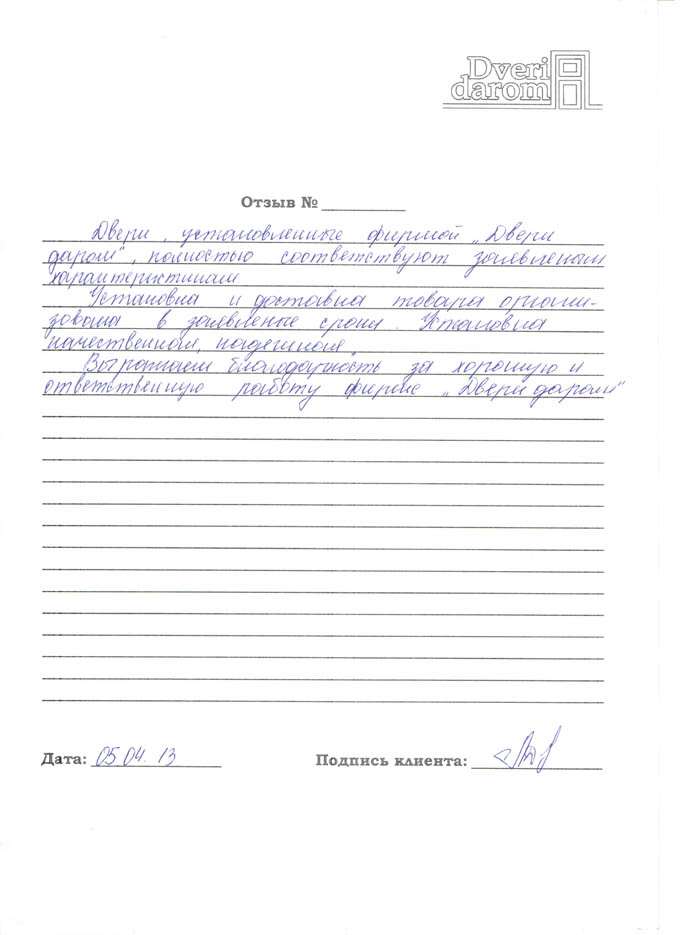 Dveri
darom
Отзыв №
Двери, установленные фирмой „Двери
даром", полностью соответствуют заявленным
характеристикам
Установка и доставка товара органи-
зована в заявленые сроки. Установка
качественная, надежная.
Выражаем благодарность за хорошую и
ответственную работу фирме „Двери даром"
Дата: 05.04.13
Подпись клиента: